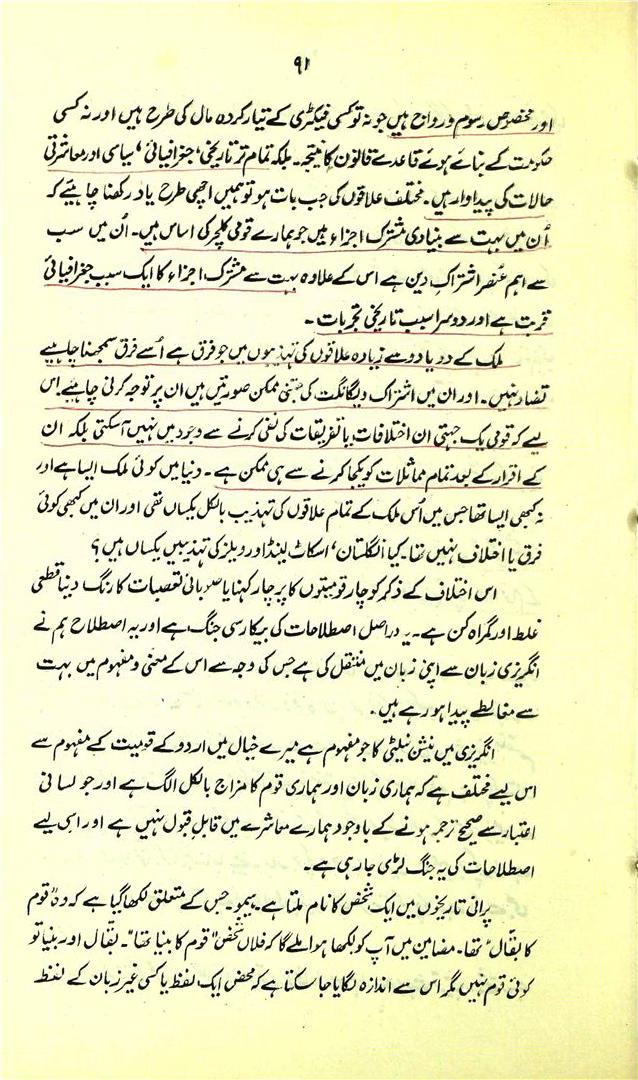 ۹۱
اور مخصوص رسوم و رواج ہیں جو نہ تو کسی فیکٹری کے تیار کردہ مال کی طرح ہیں اور نہ کسی
حکومت کے بنائے ہوئے قاعدے قانون کا نتیجہ۔ بلکہ تمام تر تاریخی، جغرافیائی، سیاسی اور معاشرتی
حالات کی پیداوار ہیں۔ مختلف علاقوں کی جب بات ہو تو ہمیں اچھی طرح یاد رکھنا چاہیئے کہ
اُن میں بہت سے بنیادی مشترک اجزاء ہیں جو ہمارے قومی کلچر کی اساس ہیں۔ اُن میں سب
سے اہم عنصر اشتراکِ دین ہے اس کے علاوہ بہت سے مشترک اجزاء کا ایک سبب جغرافیائی
قربت ہے اور دوسرا سبب تاریخی تجربات۔
ملک کے دو یا دو سے زیادہ علاقوں کی تہذیبوں میں جو فرق ہے اُسے فرق سمجھنا چاہیے
تضاد نہیں۔ اور ان میں اشتراک و یگانگت کی جتنی ممکن صورتیں ہیں ان پر توجہ کرنی چاہیے اس
لیے کہ قومی یک جہتی ان اختلافات یا تفریقات کی نفی کرنے سے وجود میں نہیں آسکتی بلکہ ان
کے اقرار کے بعد تمام مماثلات کو یکجا کرنے سے ہی ممکن ہے۔ دنیا میں کوئی ملک ایسا ہے اور
نہ کبھی ایسا تھا جس میں اُس ملک کے تمام علاقوں کی تہذیب بالکل یکساں تھی اور ان میں کبھی کوئی
فرق یا اختلاف نہیں تھا۔ کیا انگلستان، اسکاٹ لینڈ اور ویلز کی تہذیبیں یکساں ہیں؟
اس اختلاف کے ذکر کو چار قومیتوں کا پرچار کہنا یا صوبائی تعصبات کا رنگ دینا قطعی
غلط اور گمراہ کن ہے۔ یہ دراصل اصطلاحات کی بیکار سی جنگ ہے اور یہ اصطلاح ہم نے
انگریزی زبان سے اپنی زبان میں منتقل کی ہے جس کی وجہ سے اس کے معنی و مفہوم میں بہت
سے مغالطے پیدا ہو رہے ہیں۔
انگریزی میں نیشن نیلٹی کا جو مفہوم ہے میرے خیال میں اردو کے قومیت کے مفہوم سے
اس لیے مختلف ہے کہ ہماری زبان اور ہماری قوم کا مزاج بالکل الگ ہے اور جو لسانی
اعتبار سے صحیح ترجمہ ہونے کے باوجود ہمارے معاشرے میں قابلِ قبول نہیں ہے اور اسی لیے
اصطلاحات کی یہ جنگ لڑی جا رہی ہے۔
پرانی تاریخوں میں ایک شخص کا نام ملتا ہے۔ ہیمو۔ جس کے متعلق لکھا گیا ہے کہ وہ "قوم
کا بقال" تھا۔ مضامین میں آپ کو لکھا ہوا ملے گا کہ فلاں شخص "قوم کا بنیا تھا"۔ بقال اور بنیا تو
کوئی قوم نہیں مگر اس سے اندازہ لگایا جا سکتا ہے کہ محض ایک لفظ یا کسی غیر زبان کے لفظ